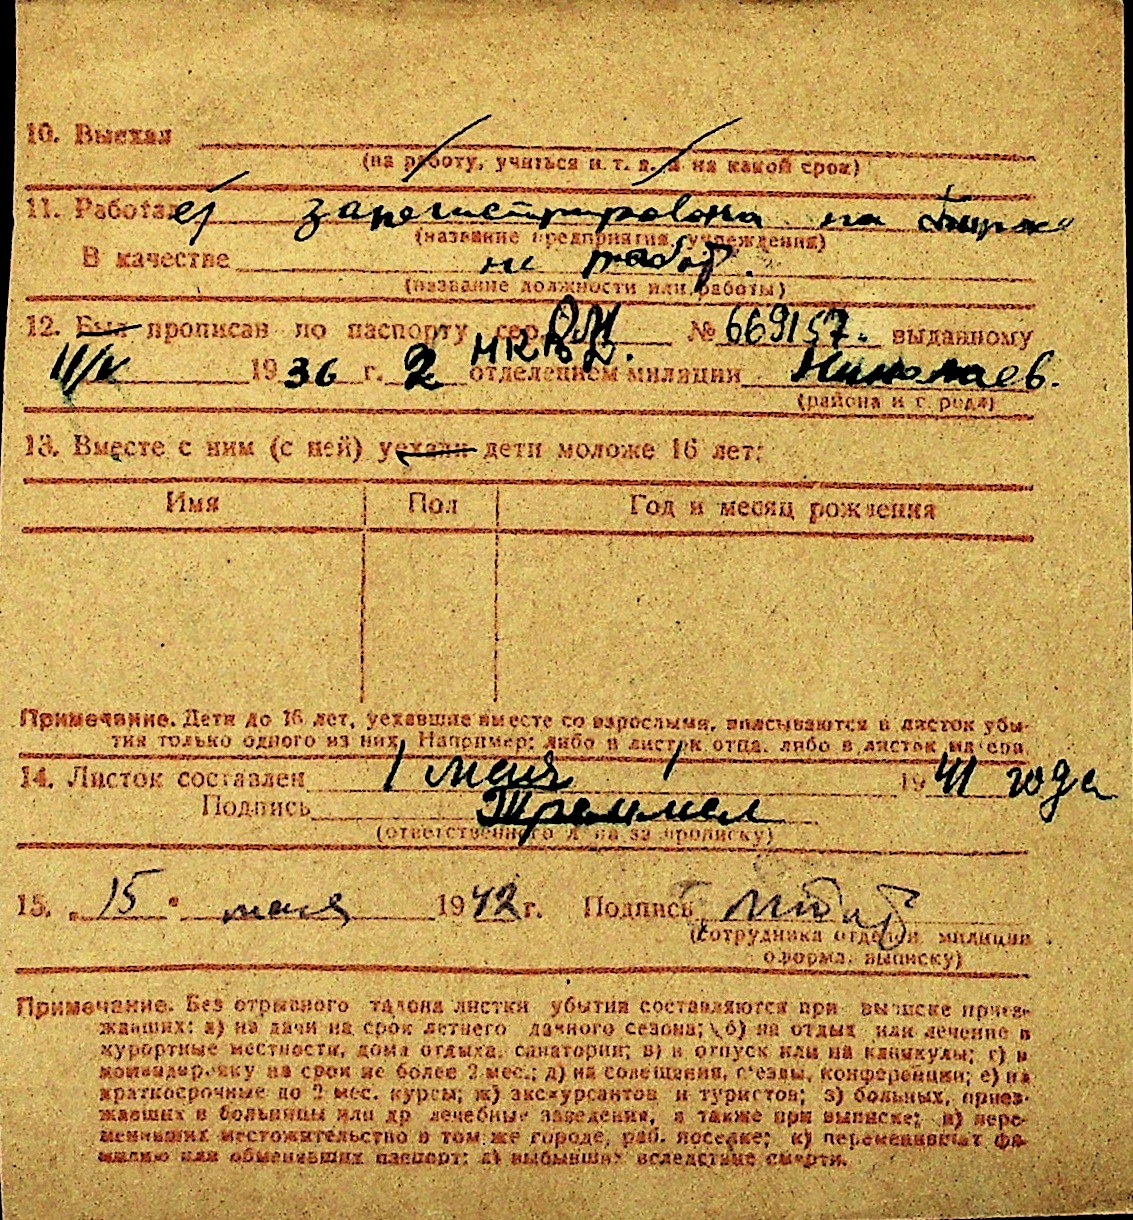 10. Выехал
(на работу, учиться и т. д. и на какой срок)
11. Работает зарегистрирована на Бирже
(название предприятия, учреждения)
В качестве не работ.
(название должности или работы)
12. Был прописан по паспорту сер. № 669157. выданному
1936 г. 2 НКВД. отделением милиции Николаев.
(района и города)
13. Вместе с ним (с ней) уехали дети моложе 16 лет:
Имя Пол Год и месяц рождения
Примечание. Дети до 16 лет, уехавшие вместе со взрослыми, вписываются в листок убы-
тия только одного из них. Например: либо в листок отца, либо в листок матери
14. Листок составлен 1 мая 1941 года
Подпись
(ответственного лица за прописку)
15. „15" мая 1942 г. Подпись
(сотрудника отделен. милиции
оформл. выписку)
Примечание. Без отрывного талона листки убытия составляются при выписке приез-
жавших: а) на дачи на срок летнего дачного сезона; б) на отдых или лечение в
курортные местности, дома отдыха, санатории; в) в отпуск или на каникулы; г) в
командировку на срок не более 2 мес.; д) на совещания, с'езды, конференции; е) на
краткосрочные до 2 мес. курсы; ж) экскурсантов и туристов; з) больных, приез-
жавших в больницы или др. лечебные заведения, а также при выписке; и) пере-
менивших местожительство в том же городе, раб. поселке; к) переменивших фа-
милию или обменивших паспорт; л) выбывших вследствие смерти.